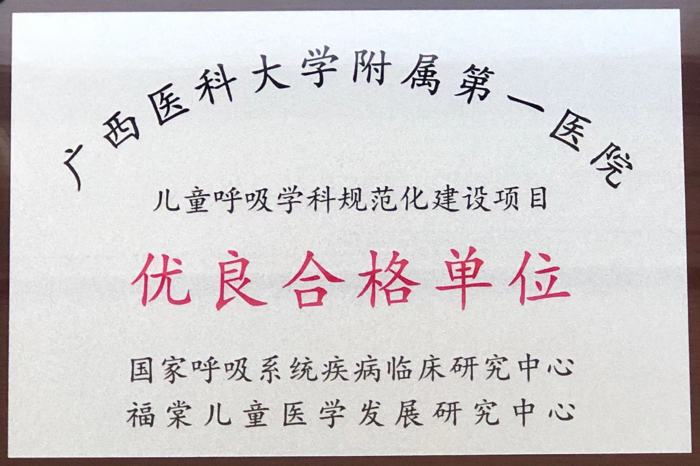 广西医科大学附属第一医院
儿童呼吸学科规范化建设项目
优良合格单位
国家呼吸系统疾病临床研究中心
福棠儿童医学发展研究中心